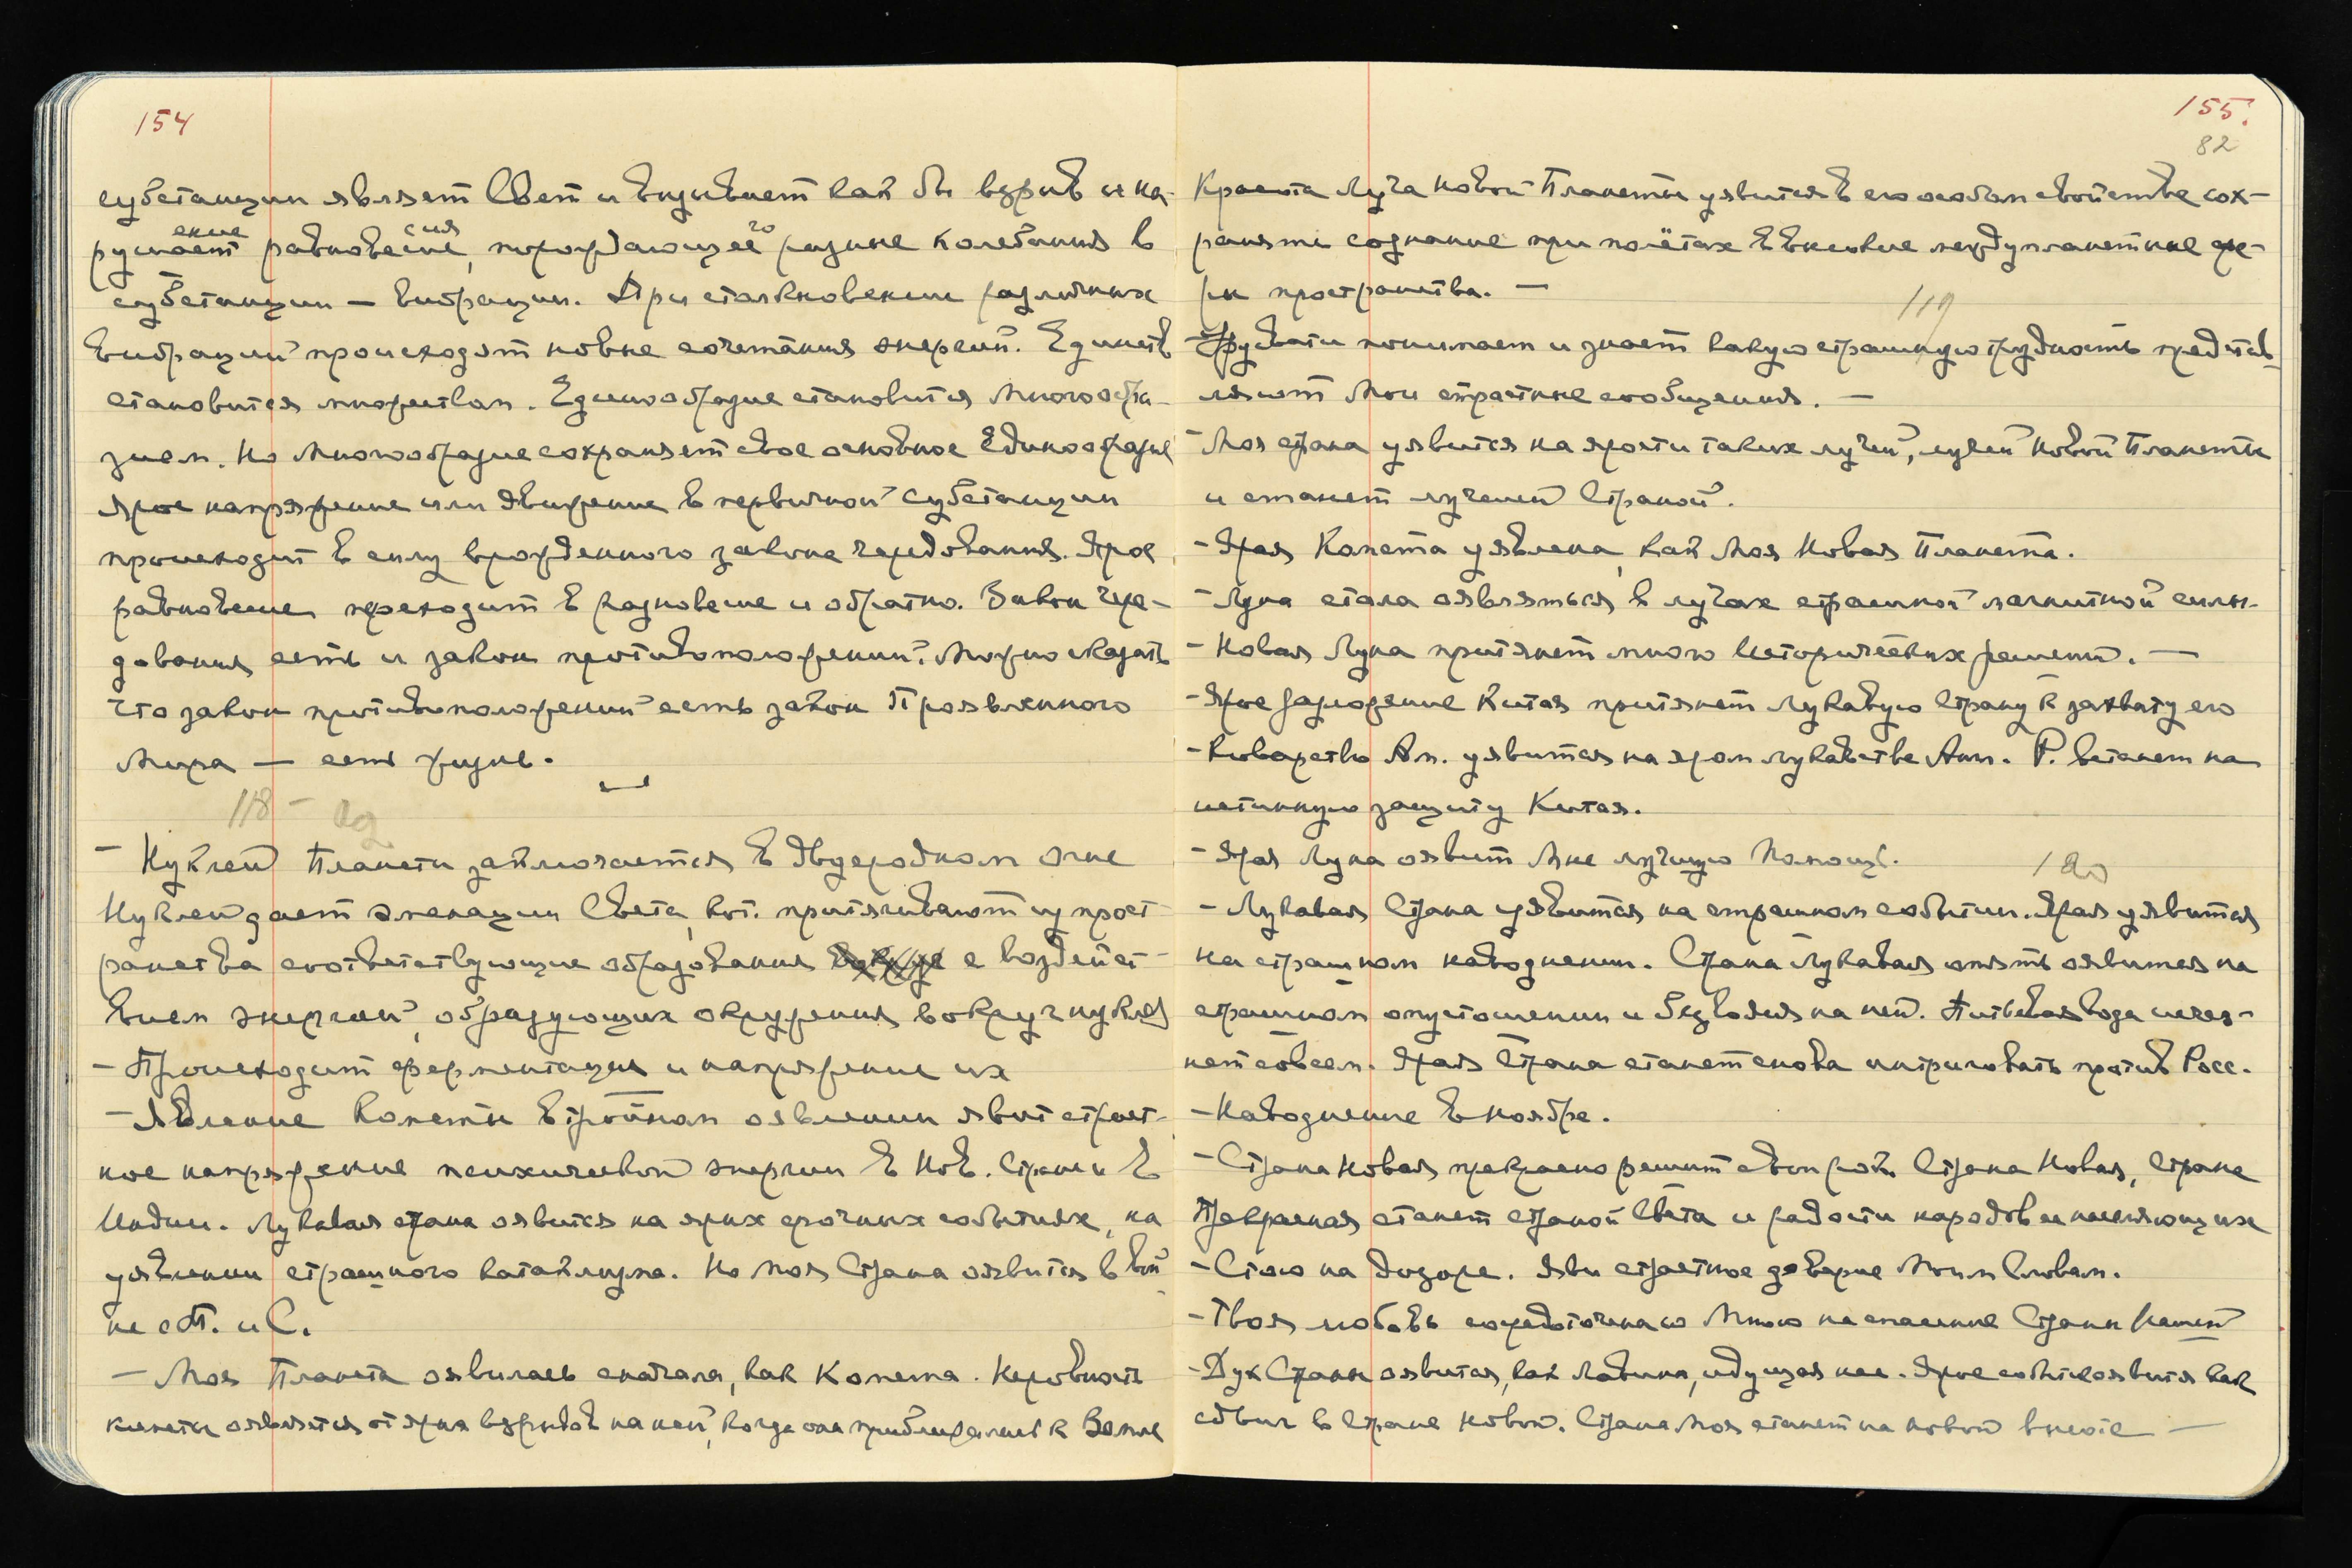 154
субстанции являет Свет и вызывает как бы взрыв и на-
рушение равновесия, порождающего разные колебания в
субстанции — вибрации. При столкновении различных
вибраций происходят новые сочетания энергий. Единств
становится множеством. Единообразие становится Многообра-
зием. Но Многообразие сохраняет свое основное Единообразие
Ярое напряжение или движение в первичной субстанции
происходит в силу врожденного закона чередования. Ярое
равновесие переходит в разновесие и обратно. Закон чере-
дования есть и закон противоположений. Можно сказать
что закон противоположений есть закон Проявленного
Мира — есть жизнь.
118 –
– Нуклей Планеты заключается в двуеродном огне
Нуклей дает эманации Света, кот. притягивают из прост-
ранства соответствующие образования с воздейст-
вием энергий, образующих окружения вокруг нуклея
– Происходит ферментация и напряжение их
– Явление Кометы в тройном оявлении явит страст-
ное напряжение психической энергии в Нов. Стране и в
Индии. Лукавая страна оявится на ярых срочных событиях, на
уявлении страшного катаклизма. Но Моя Страна оявится в вой-
не с П. и С.
– Моя Планета оявилась сначала, как Комета. Неровность
кометы оявляется от ярых взрывов на ней, когда она приближалась к Земле
155.
82
Красота Луча Новой Планеты уявится в его особом свойстве сох-
ранять сознание при полётах в высокие междупланетные сфе-
ры пространства. —
119
– Урусвати понимает и знает какую страшную трудность представ-
ляют Мои страстные сообщения. —
– Моя страна уявится на ярости таких лучей, лучей Новой Планеты
и станет лучшей Страной.
– Ярая Комета уявлена, как Моя Новая Планета.
– Луна стала оявляться в лучах страшной магнитной силы.
– Новая Луна притянет много Исторических решений. —
– Ярое разложение Китая притянет Лукавую Страну к захвату его
– Коварство Ам. уявится на яром лукавстве Анг. Р. встанет на
истинную защиту Китая.
– Ярая Луна оявит Мне лучшую Помощь.
120
– Лукавая Страна уявится на страшном событии. Ярая уявится
на страшном наводнении. Страна Лукавая опять оявится на
страшном опустошении и безводия на ней. Питьевая вода исчез-
нет совсем. Ярая Страна станет снова интриговать против Росс.
– Наводнение в ноябре.
– Страна Новая прекрасно решит свой рок. Страна Новая, Страна
Прекрасная станет страной Света и радости народов ее населяющих
– Стою на Дозоре. Яви страстное доверие Моим Словам.
– Твоя любовь сосредоточена со Мною на спасение Страны Нашей
– Дух Страны оявится, как Лавина, идущая на нее. Ярое событие оявится как
сдвиг в Стране Новой. Страна Моя станет на новой высоте —